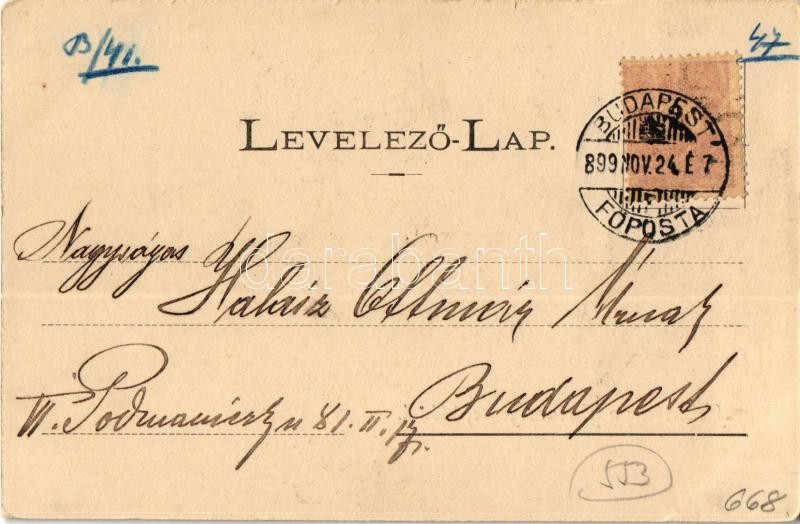 B/41.
47
LEVELEZŐ-LAP.
BUDAPEST
899 NOV. 24. É 7
FŐPOSTA
Nagyságos Halász Ottmár Úrnak
darabanth
VI. Podmaniczky u 81. II. 17.
Budapest
553
668